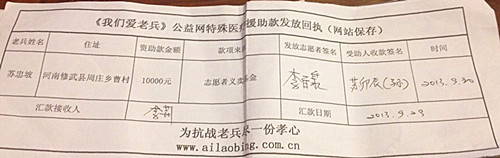 《我们爱老兵》公益网特殊医疗援助款发放回执（网站保存）
老兵姓名 住址 资助款金额 款项来 发放志愿者签名 受助人收款签名 时间
苏忠坡 河南修武县周庄乡曹村 10000元 志愿者义卖 金 2013.9.30
汇款接收人 汇款日期 2013.9.29
为抗战老兵尽一份孝心
www.ailaobing.com.cn